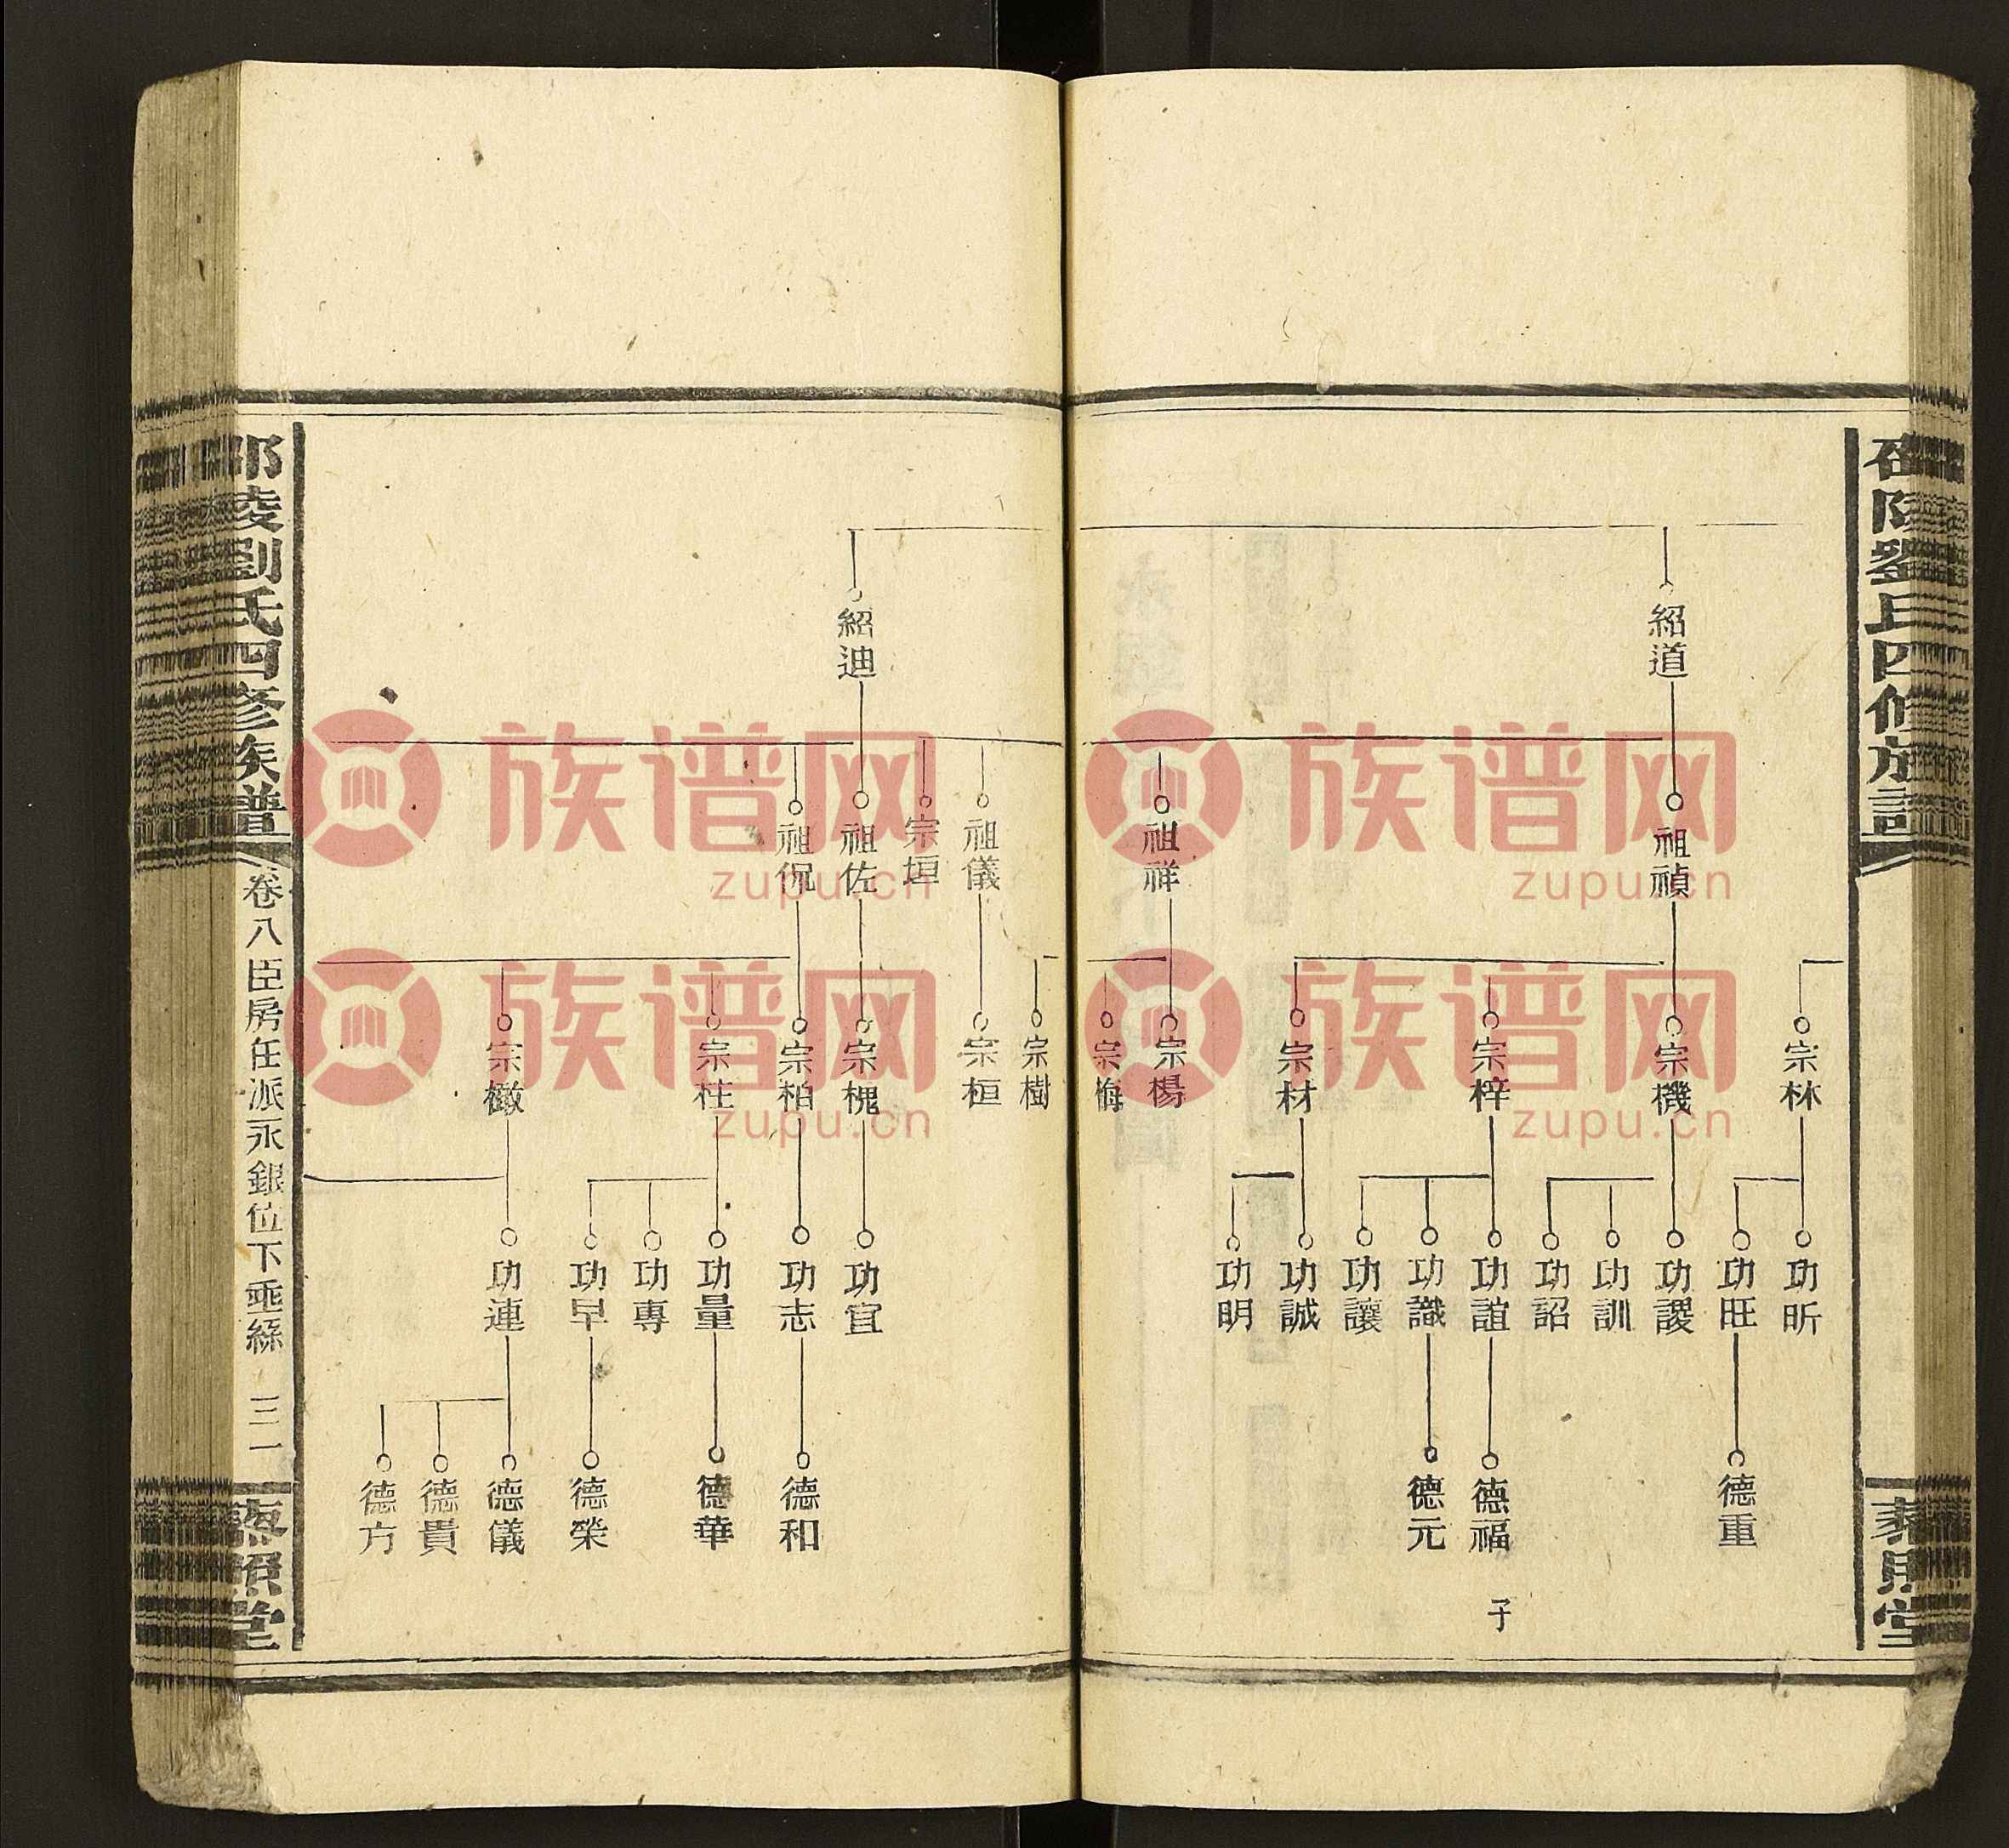 紹道
祖禎
祖祥
宗林
宗機
宗梓
宗材
宗楊
宗梅
功昕
功旺
功謖
功訓
功詔
功誼
功識
功讓
功誠
功明
德重
德福
子
德元
紹迪
祖儀
宗垣
祖佐
祖侃
宗樹
宗桓
宗槐
宗柏
宗柱
宗檄
功宜
功志
功量
功專
功早
功連
德和
德華
德榮
德儀
德貴
德方
邵陵劉氏四修族譜
卷八臣房任派永銀位下垂絲 三一
藜照堂
族谱网
zupu.cn
族谱网
zupu.cn
族谱网
zupu.cn
族谱网
zupu.cn